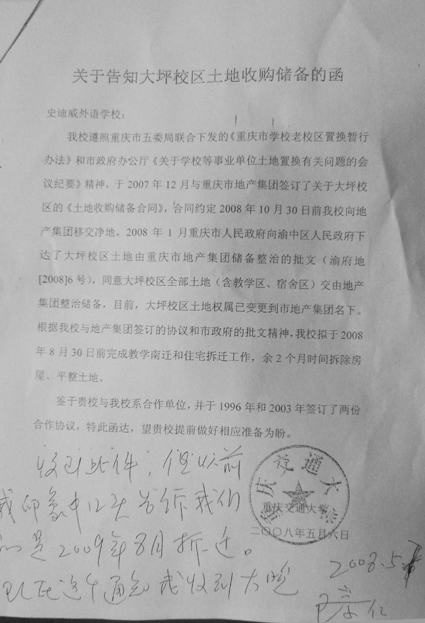 关于告知大坪校区土地收购储备的函
史迪威外语学校：
我校遵照重庆市五委局联合下发的《重庆市学校老校区置换暂行
办法》和市政府办公厅《关于学校等事业单位土地置换有关问题的会
议纪要》精神，于 2007 年 12 月与重庆市地产集团签订了关于大坪校
区的《土地收购储备合同》，合同约定 2008 年 10 月 30 日前我校向地
产集团移交净地。2008 年 1 月重庆市人民政府向渝中区人民政府下
达了大坪校区土地由重庆市地产集团储备整治的批文（渝府地
[2008]6 号），同意大坪校区全部土地（含教学区、宿舍区）交由地产
集团整治储备，目前，大坪校区土地权属已变更到市地产集团名下。
根据我校与地产集团签订的协议和市政府的批文精神，我校拟于 2008
年 8 月 30 日前完成教学南迁和住宅拆迁工作，余 2 个月时间拆除房
屋、平整土地。
鉴于贵校与我校系合作单位，并于 1996 年和 2003 年签订了两份
合作协议，特此函达，望贵校提前做好相应准备为盼。
重庆交通大学
重庆交通大学
二〇〇八年五月六日
收到此件，但以前
我印象中口头告诉我们
的是2009年8月拆迁。
现在这个通知我收到太晚
2008.5.